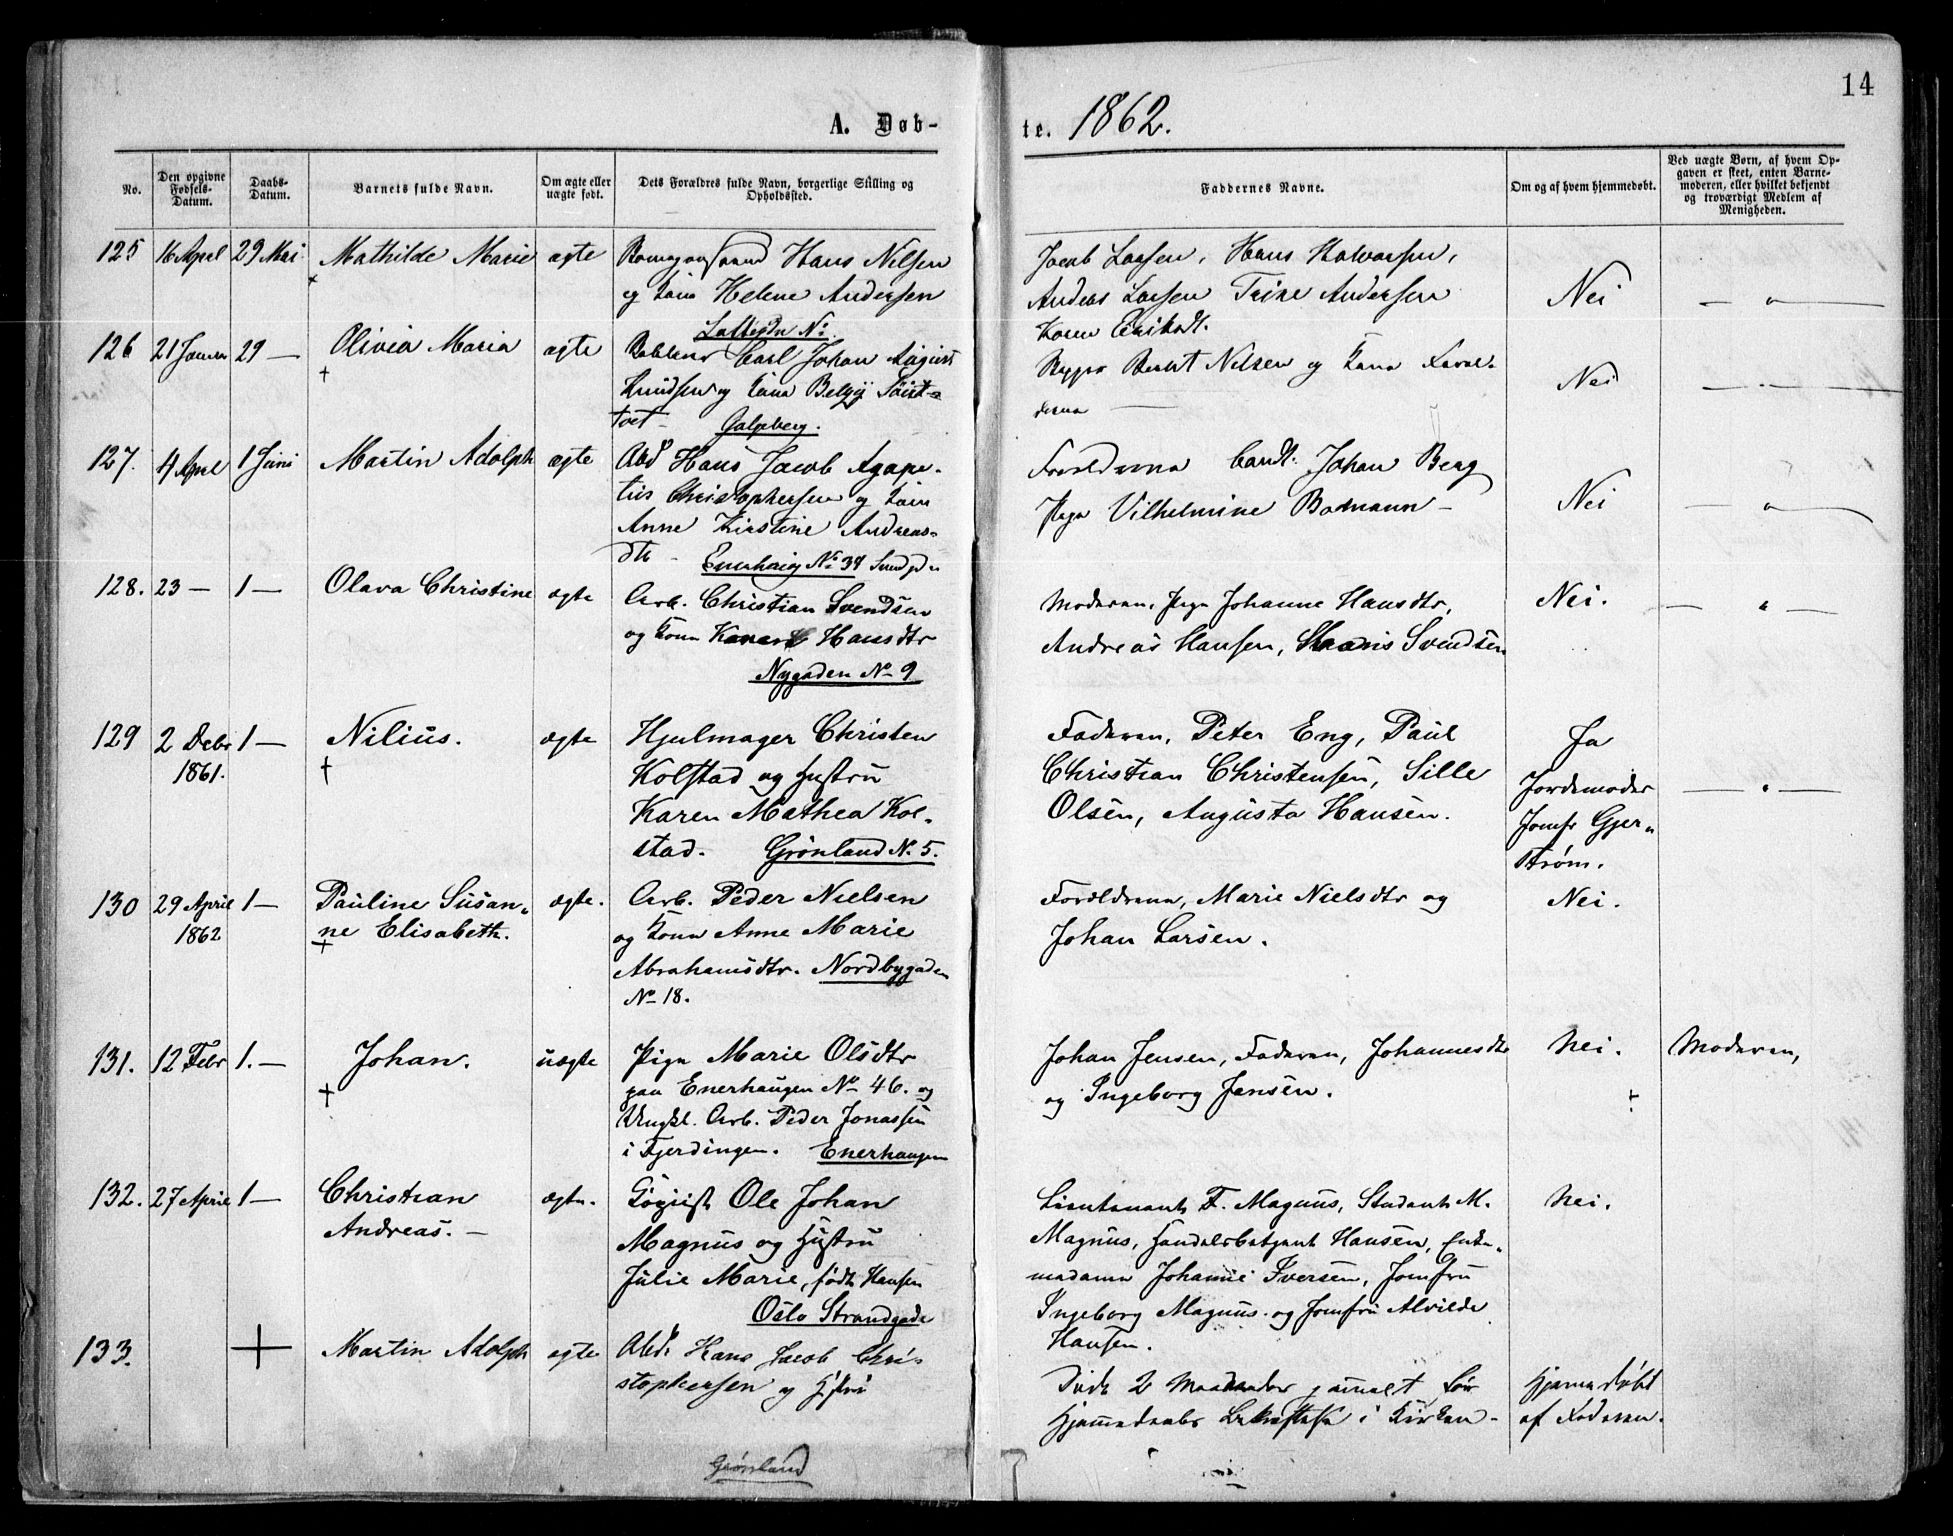 14
A. Døb-
te. 1862.
No.
Den opgivne Fødsels-Datum.
Daabs-Datum.
Barnets fulde Navn.
Om ægte eller uægte født.
Dets Forældres fulde Navn, borgerlige Stilling og Opholdssted.
Faddernes Navne.
Om og af hvem hjemmedøbt.
Ved uægte Børn, af hvem Opgaven er skeet, enten Barnemoderen, eller hvilket bekjendt og troværdigt Medlem af Menigheden.
125 16 April 29 Mai Mathilde Marie ægte Hans Nilsen
og Kone Helene Andersen
Jacob Larsen, Hans Halvorsen,
Anders Larsen Trine Andersen
Karen
Nei
126 21 Januar 29 — Olivia Maria ægte Carl Johan August
Knudsen og Kone
Galgeberg.
Nilsen og Kone
Nei
127. 4 April 1 Juni Martin Adolph ægte Hans Jacob Agape-
tus Christophersen og Kone
Anne Kirstine Andreas-
dtr - Enerhaug No 34
Forældrene Johan Berg
Pige Vilhelmine Bormann -
Nei
128. 23 — 1 — Olava Christine ægte Arb. Christian Svendsen
og Kone Hansdtr
Nygaden No 9
Moderen, Pige Johanne Hansdtr,
Andreas Hansen, Svendsen
Nei.
129 2 Debr 1 — Nilius. ægte Hjulmager Christen
1861. Kolstad og Hustru
Karen Mathea Kol-
stad. Grønland No 5.
Faderen, Peter Eng, Paul
Christian Christensen, Sille
Olsen, Augusta Hansen.
Ja
Jordemoder
Jomfr Gjer-
strøm.
130 29 April 1 — Pauline Susan- ægte. Arb. Peder Nielsen
1862 ne Elisabeth. og Kone Anne Marie
Abrahamsdtr. Nordbygaden
No 18.
Forældrene, Marie Nielsdtr og
Johan Larsen.
Nei.
131. 12 Febr 1. — Johan. uægte Pige Marie Olsdtr
paa Enerhaugen No 46. og
Ungkl. Arb. Peder Jonassen
i Fjerdingen. Enerhaugen
Johan Jensen, Faderen, Johannesdtr
og Ingeborg Jensen.
Nei.
Moderen,
132. 27 April 1 — Christian ægte. Ole Johan
Andreas. - Magnus og Hustru
Julie Marie, født Hansen
Oslo Strandgade
Lieutenant F. Magnus, Student M.
Magnus, Handelsbetjent Hansen, Enke-
madame Johanne Iversen, Jomfru
Ingeborg Magnus og Jomfru Alvilde
Hansen.
Nei.
133. Martin Adolph ægte Hans Jacob Chri-
stophersen og Hustru
Døde 2 Maaneder gammelt før
Hjemmedaabs Bekræftelse i Kirken -
Hjemmedøbt
af Faderen.
Grønland